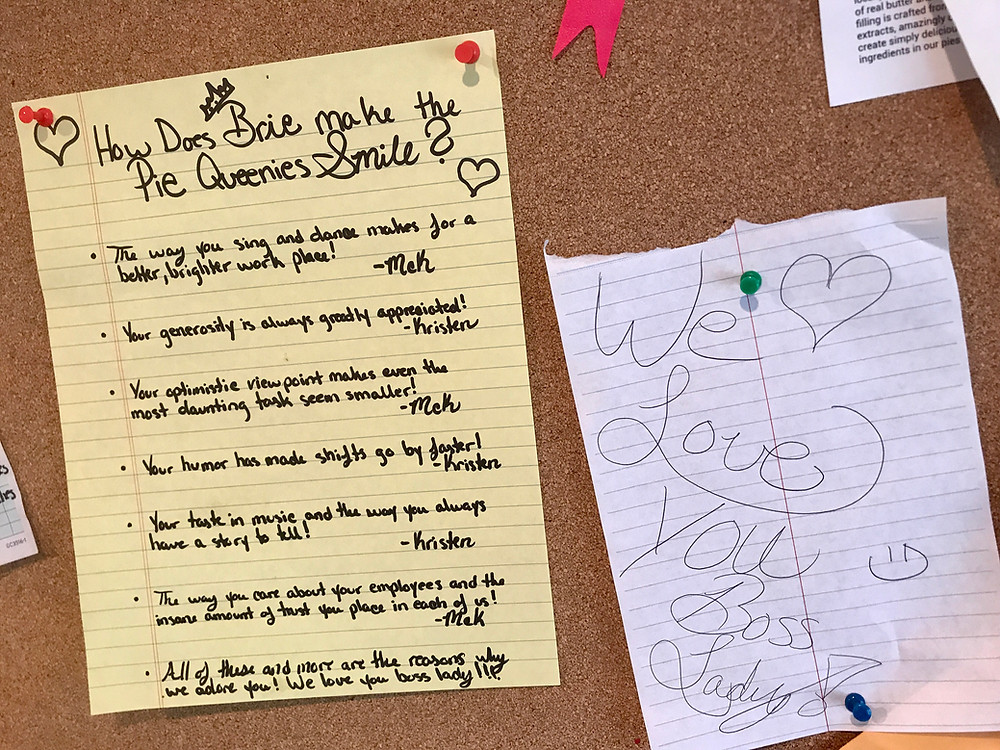 How Does Brie make the
Pie Queenies Smile?
• The way you sing and dance makes for a
better, brighter work place!
-McK
• Your generosity is always greatly appreciated!
-Kristen
• Your optimistic viewpoint makes even the
most daunting task seem smaller!
-McK
• Your humor has made shifts go by faster!
-Kristen
• Your taste in music and the way you always
have a story to tell!
-Kristen
• The way you care about your employees and the
insane amount of trust you place in each of us!
-McK
• All of these and more are the reasons why
we adore you! We love you boss lady!!!
We
Love
You
Boss
Lady!
of real butter
filling is crafted from
extracts, amazingly
create simply
ingredients in our pies